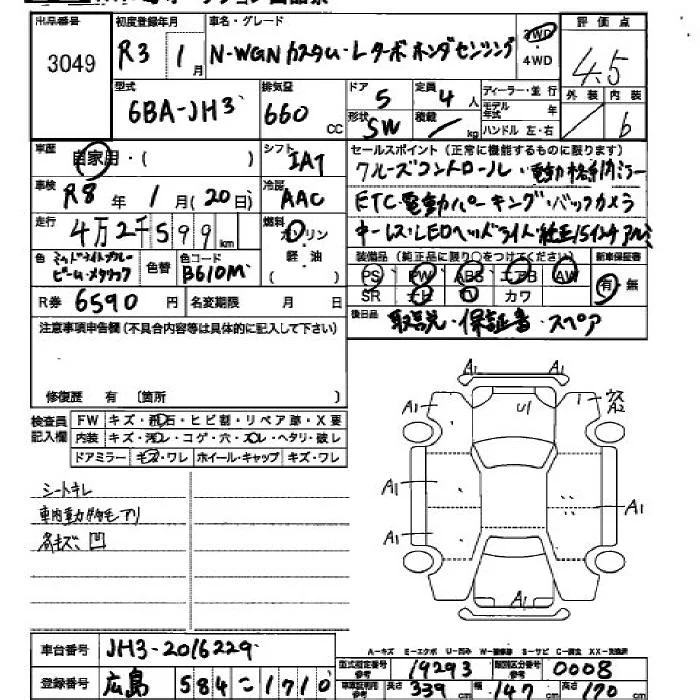 出品番号 初度登録年月 車名・グレード 評価点
3049 R3年1月 N-WGN カスタム・Lターボ ホンダセンシング 2WD 4WD 4.5
型式 排気量 ドア 定員 ディーラー・並行 外装 内装
6BA-JH3 660cc 5 4人 モデル年式 年 b
形状 積載 ハンドル 左・右
SW kg
車歴 自家用・( ) シフト IAT セールスポイント(正常に機能するものに限ります)
車検 R8年1月(20日) 冷房 AAC クルーズコントロール・電動格納ミラー
走行 4万2千599km 燃料 ガソリン 軽油 ( ) ETC・電動パーキング・バックカメラ
キーレス・LEDヘッドライト・純正15インチアルミ
色 ミッドナイトブルービーム・メタリック 色替 色コード B610M
装備品(純正品に限り○をつけてください) 新車保証書
PS PW ABS エアB AW 有・無
SR ナビ カワ
R券 6590円 名変期限 月 日
後日品 取説・保証書・スペア
注意事項申告欄(不具合内容等は具体的に記入して下さい)
修復歴 有 〔箇所 〕
検査員記入欄 FW キズ・飛石・ヒビ割・リペア跡・X要
内装 キズ・汚レ・コゲ・穴・スレ・ヘタリ・破レ
ドアミラー キズ・ワレ ホイール・キャップ キズ・ワレ
シートキレ
車内動物毛アリ
各キズ、凹
A1 A1
A1 U1 1 ウス A2
A1 A1
A1
A1
A-キズ E-エクボ U-凹み W-補修跡 S-サビ C-腐食 XX-交換済
車台番号 JH3-2016229
型式指定番号 参考 19293 類別区分番号 参考 0008
登録番号 広島 584 こ 1710
車庫証明用 参考 長さ 339 cm 幅 147 cm 高さ 170 cm